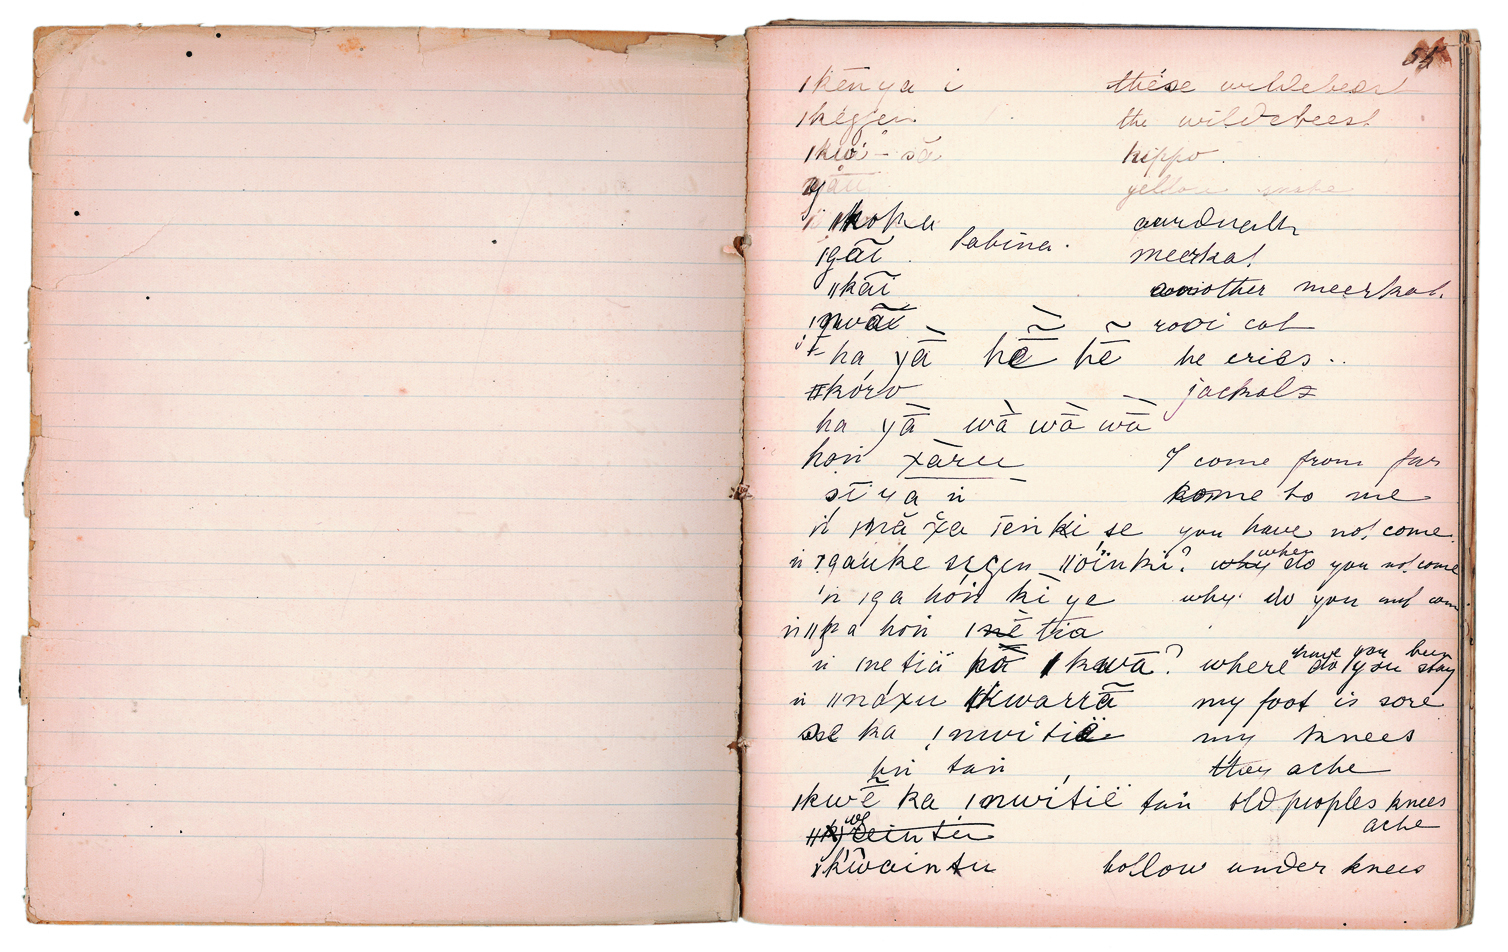 ǀkēn ya i these wildebeest
ǀkégen the wildebeest
ǀkwa - sa hippo
yellow snake
ǁkoka aardvark
ǀgãi Sabina. meerkat
ǁkãi another meerkat.
rooi cat
ha yā hē hē he cries ..
ǂkóro jackals
ha yā wā wā wā
hoń xāru I come from far
sī ya ń come to me
ń ǀná xa īenki se you have not come
ń gauke segen ǁöinki? when do you not come
'ń ǀga hoń kī ye why do you not come
ń ǁka hoń ǀnē tia
ń ǀne tiä kō ǀkwā? where have you been do you stay
ń ǁnáxu ǀkwarrã my foot is sore
se ka ǃnwitië my knees
ún tań they ache
ǀkwẽ ka ǀnwitië tań old peoples knees
ache
kwaintu hollow under knees